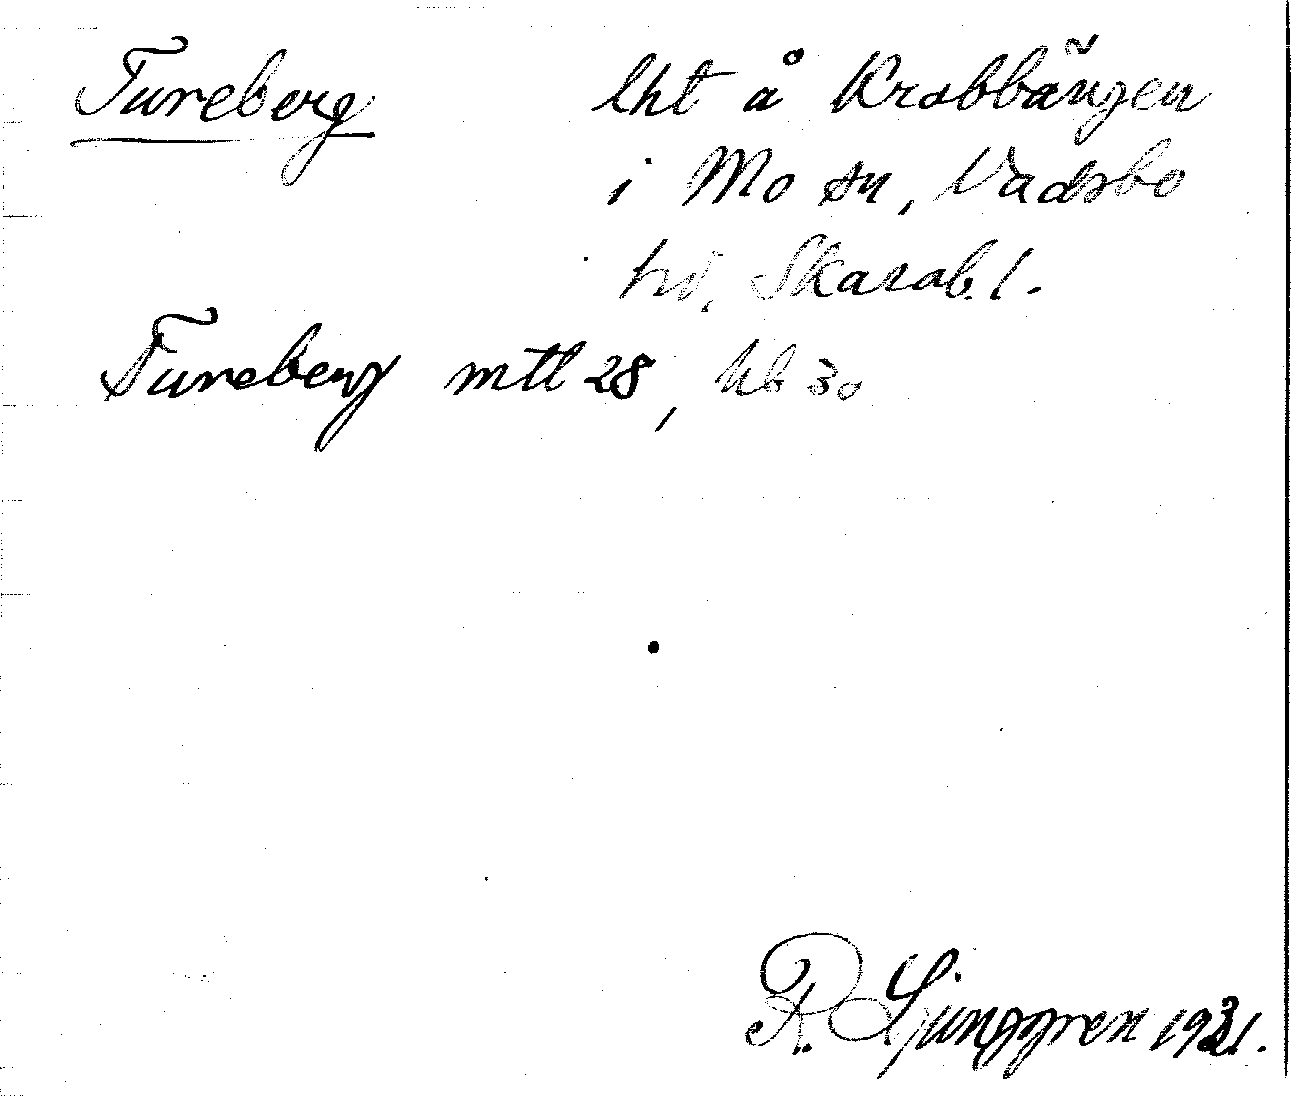 Tureberg lht å Krabbängen
i Mo sn, Vadsbo
hd, Skarab. l.
Tureberg mtl 28, hb 30
R. Ljunggren 1931.